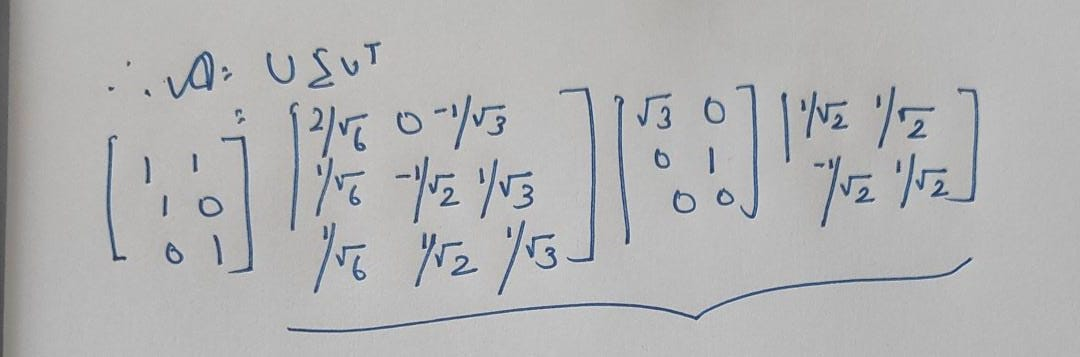 ∴ A = U Σ V^T
[1 1; 1 0; 0 1] = [2/√6 0 -1/√3; 1/√6 -1/√2 1/√3; 1/√6 1/√2 1/√3] [√3 0; 0 1; 0 0] [1/√2 1/√2; -1/√2 1/√2]